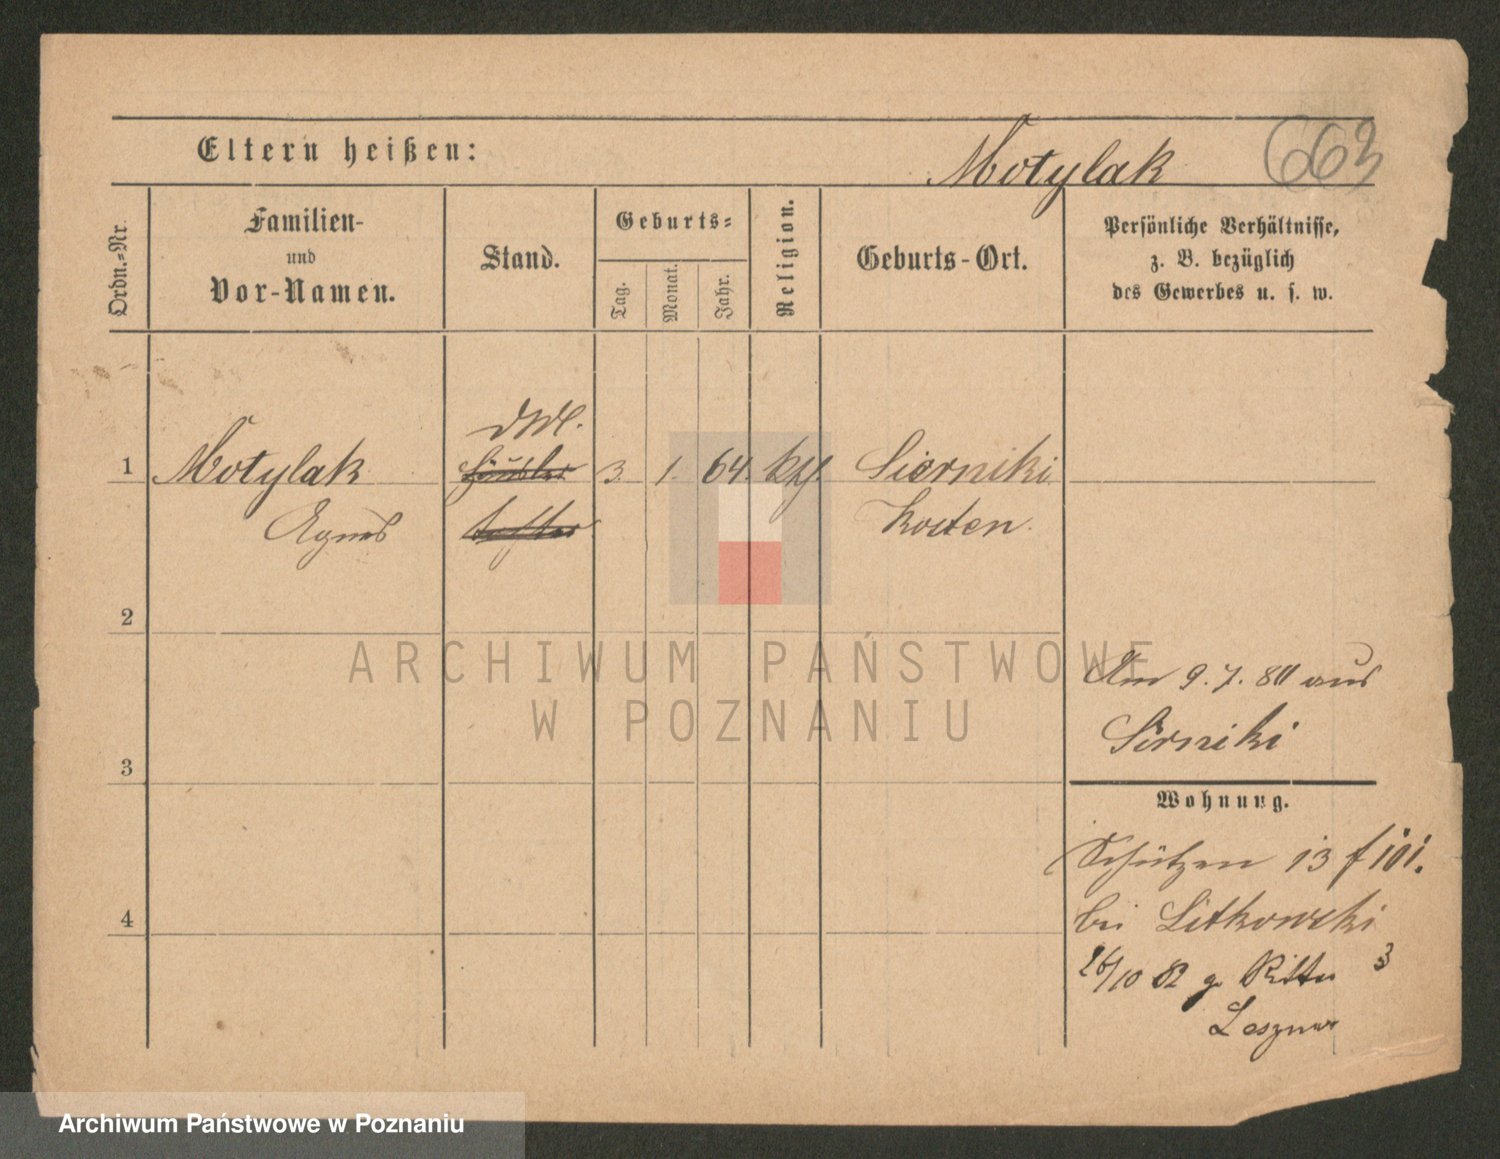 Eltern heißen:
Motylak
663
Ordn.=Nr.
Familien-
und
Vor-Namen.
Stand.
Geburts=
Tag.
Monat.
Jahr.
Religion.
Geburts-Ort.
Persönliche Verhältnisse,
z. B. bezüglich
des Gewerbes u. s. w.
1 Motylak 3. 1. 64. kth. Sierniki
Agnes Kosten.
2
ARCHIWUM PAŃSTWOWE
W POZNANIU
Am 9. 7. 80 aus
Sirniki
3
Wohnung.
Schützen 13
4
bei Litkowski
26/10 82 Ritter 3
Archiwum Państwowe w Poznaniu